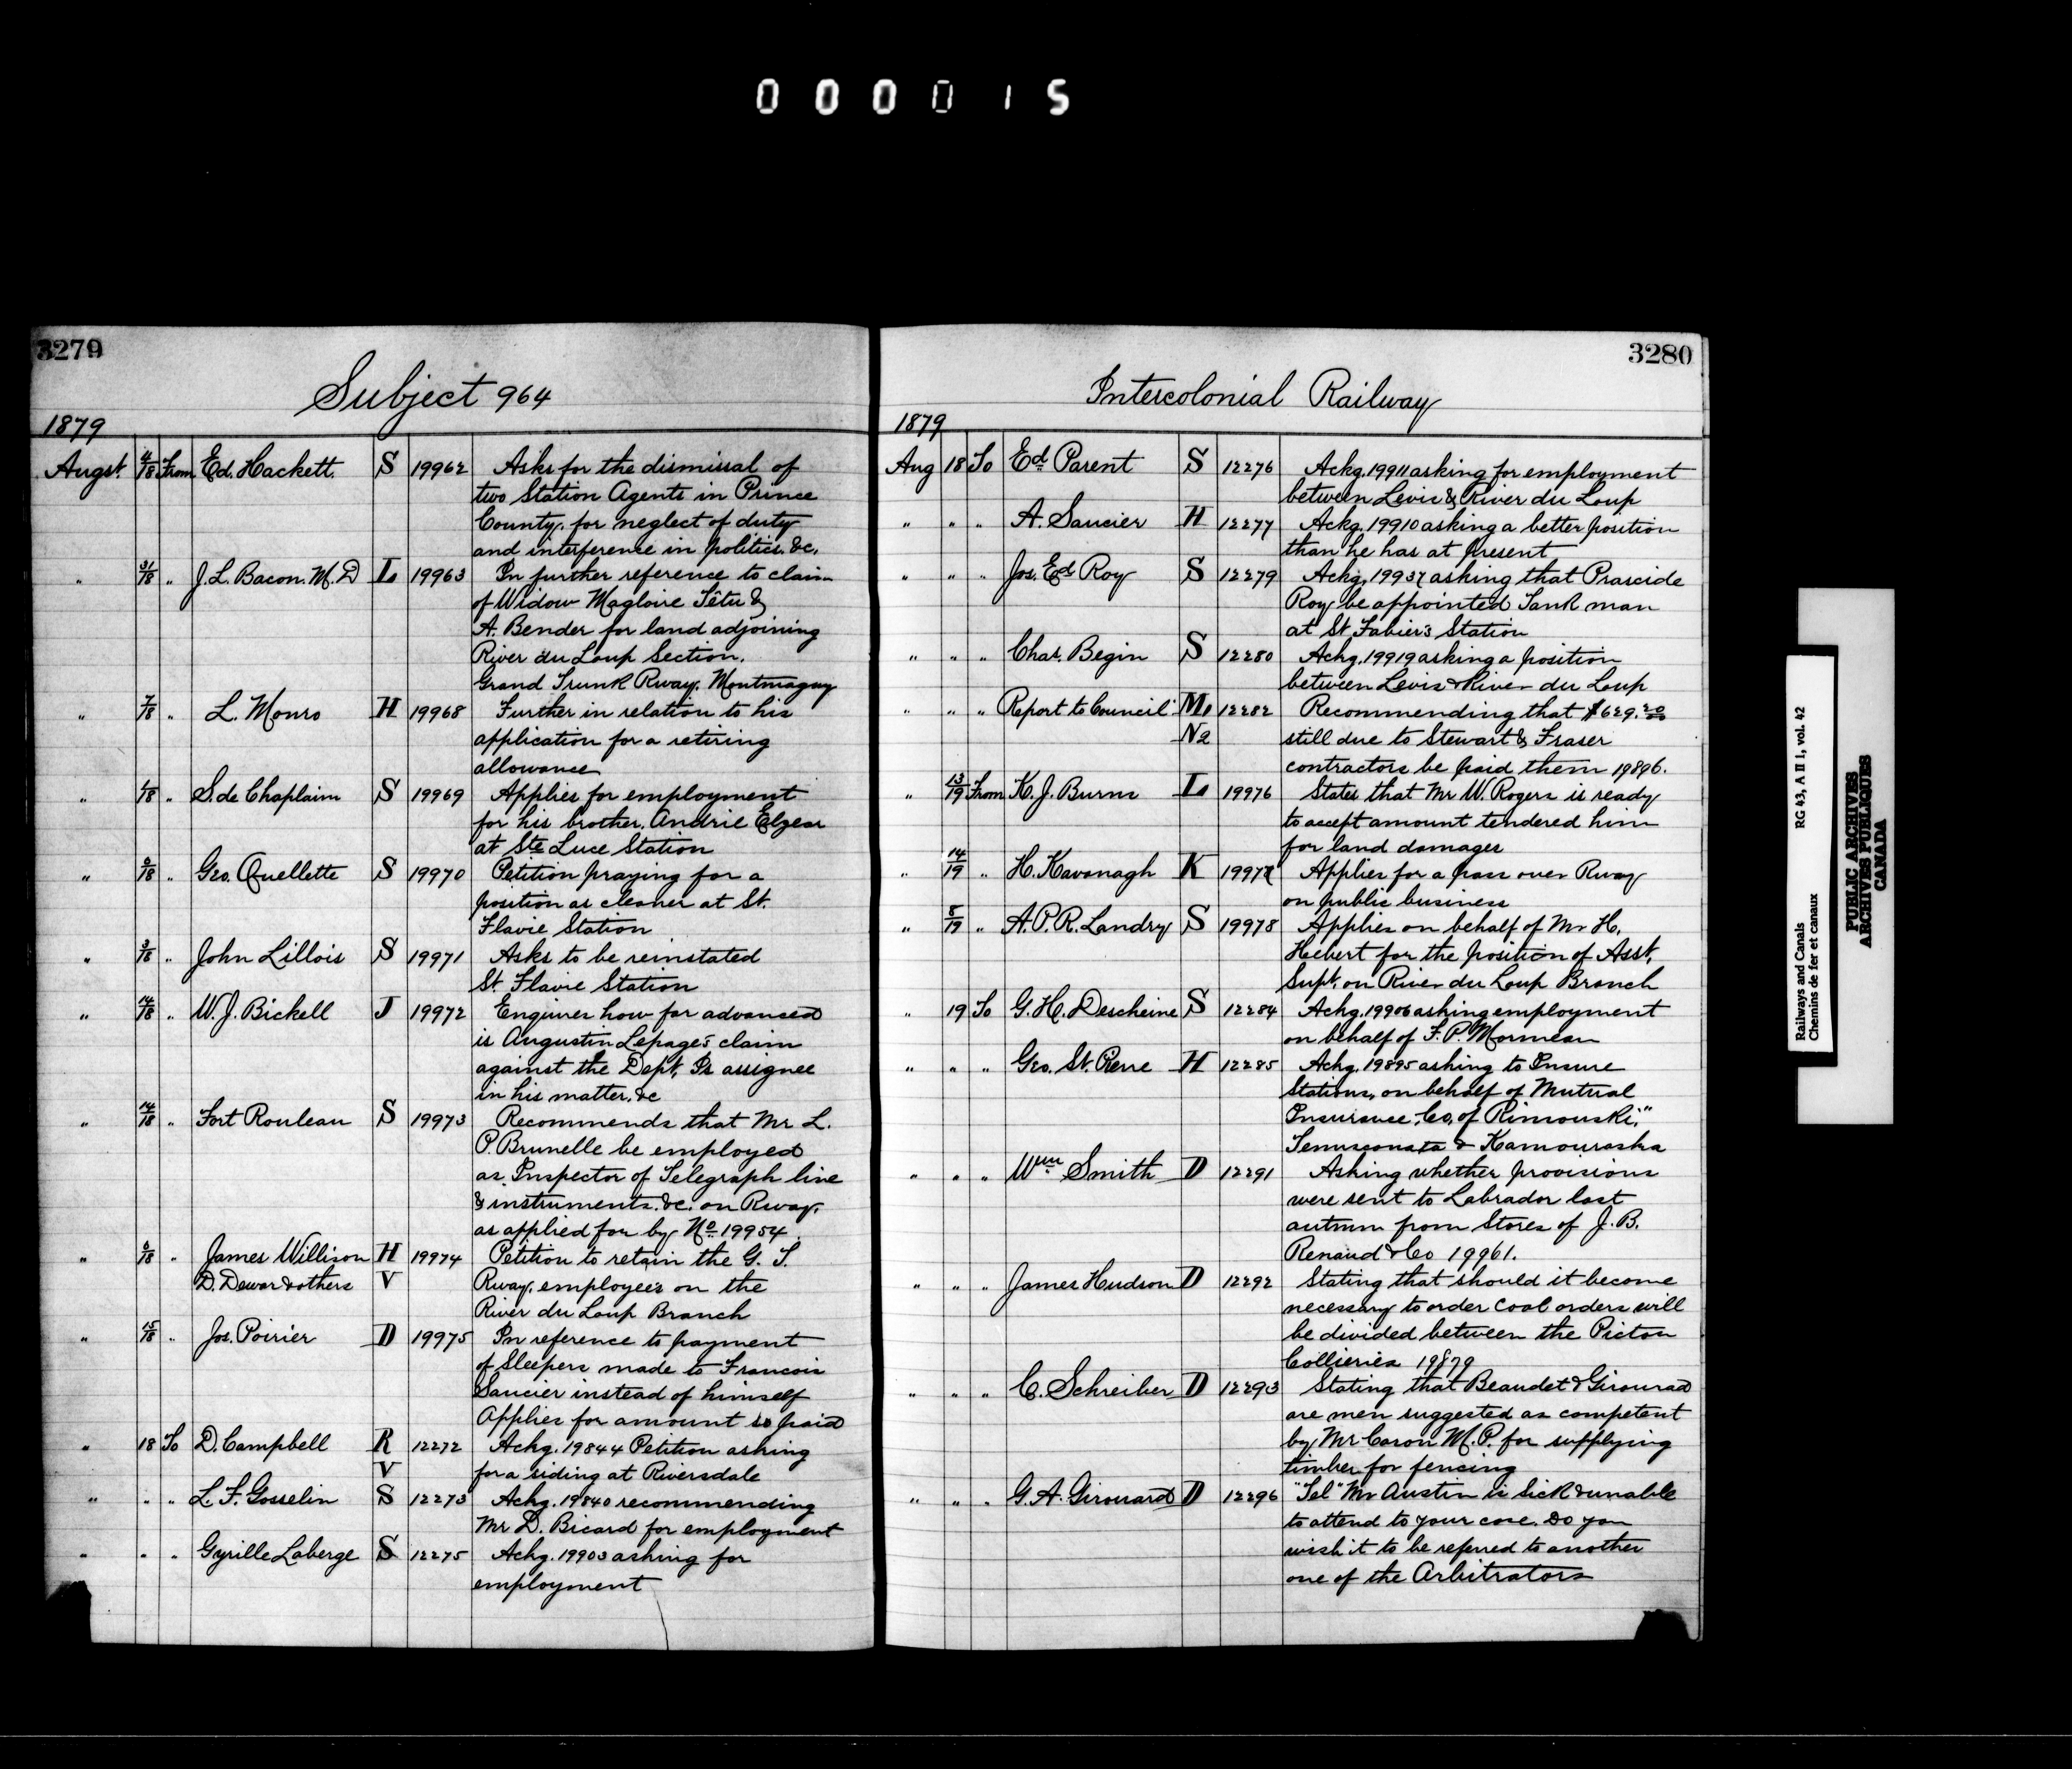 000015
3279
Subject 964
1879
Augst. 4/18 From Ed. Hackett. S 19962 Asks for the dismissal of
two Station Agents in Prince
County, for neglect of duty
and interference in politics. &c.
" 31/18 " J. L. Bacon. M. D L 19963 In further reference to claim
of Widow Magloire Têtu &
A. Bender for land adjoining
River du Loup Section.
Grand Trunk Rway. Montmagny
" 7/18 " L. Monro H 19968 Further in relation to his
application for a retiring
allowance
" /18 " S. de Chaplaim S 19969 Applies for employment
for his brother. Andrie Elzear
at Ste Luce Station
" 6/18 " Geo. Ouellette S 19970 Petition praying for a
position as cleaner at St.
Flavie Station
" 3/18 " John Lillois S 19971 Asks to be reinstated
St. Flavie Station
" 14/18 " W. J. Bickell J 19972 Enquires how far advanced
is Augustin Lepage's claim
against the Dept. Is assignee
in his matter. &c
" 14/18 " Fort Rouleau S 19973 Recommends that Mr L.
P. Brunelle be employed
as Inspector of Telegraph line
& instruments. &c. on Rway.
as applied for by No. 19954.
" 6/18 " James Willison H 19974 Petition to retain the G. T.
D. Dewar & others V Rway. employees on the
River du Loup Branch
" 15/18 " Jos. Poirier D 19975 In reference to payment
of Sleepers made to Francois
Saucier instead of himself
Applies for amount so paid
" 18 To D. Campbell R 12272 Ackg. 19844 Petition asking
V for a siding at Riversdale
" " " L. F. Gosselin S 12273 Ackg. 19840 recommending
Mr D. Bicard for employment
" " " Gyrille Laberge S 12275 Ackg. 19903 asking for
employment
3280
Intercolonial Railway
1879
Aug 18 To Ed. Parent S 12276 Ackg. 19911 asking for employment
between Levis & River du Loup
" " " A. Saucier H 12277 Ackg. 19910 asking a better position
than he has at present
" " " Jos. Ed. Roy S 12279 Ackg. 19937 asking that Prascide
Roy be appointed Tank man
at St Fabier's Station
" " " Chas. Begin S 12280 Ackg. 19919 asking a position
between Levis & River du Loup
" " " Report to Council M. 12282 Recommending that $629.20
N2 still due to Stewart & Fraser
contractors be paid them 19896.
" 13/19 From K. J. Burns L 19976 States that Mr W. Rogers is ready
to accept amount tendered him
for land damages
" 14/19 " H. Kavanagh K 19977 Applies for a pass over Rway
on public business
" 8/19 " A. P. R. Landry S 19978 Applies on behalf of Mr H.
Hebert for the position of Asst.
Supt. on River du Loup Branch
" 19 To G. H. Descheine S 12284 Ackg. 19906 asking employment
on behalf of F. P. Morneau
" " " Geo. St. Pierre H 12285 Ackg. 19895 asking to Insure
Stations, on behalf of Mutual
Insurance. Co. of Rimouski,"
Temisconata & Kamouraska
" " " Wm Smith D 12291 Asking whether provisions
were sent to Labrador last
autmn from Stores of J. B.
Renaud & Co 19961.
" " " James Hudson D 12292 Stating that should it become
necessary to order coal orders will
be divided between the Picton
Collieries 19879
" " " C. Schreiber D 12293 Stating that Beaudet & Girourad
are men suggested as competent
by Mr Caron M. P. for supplying
timber for fencing
" " " G. A. Girouard D 12296 "Tel" Mr Austin is Sick & unable
to attend to your case. Do you
wish it to be referred to another
one of the Arbitrators
Railways and Canals RG 43, A II 1, vol. 42
Chemins de fer et canaux
PUBLIC ARCHIVES
ARCHIVES PUBLIQUES
CANADA